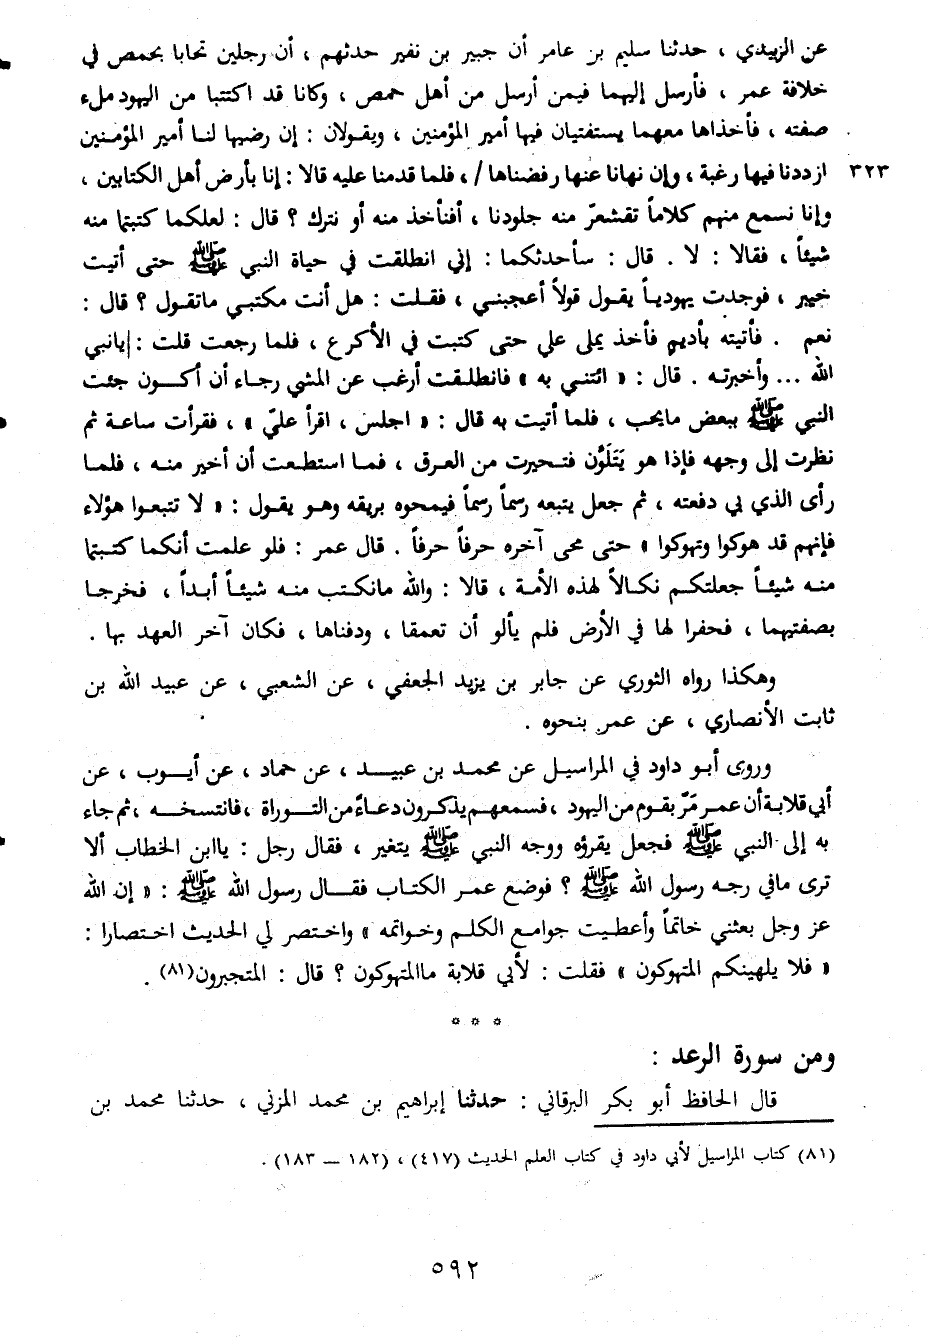 عن الزبيدي ، حدثنا سليم بن عامر أن جبير بن نفير حدثهم ، أن رجلين تحابا بحمص في
خلافة عمر ، فأرسل إليهما فيمن أرسل من أهل حمص ، وكانا قد اكتتبا من اليهود ملء
صفته ، فأخذاها معهما يستفتيان فيها أمير المؤمنين ، ويقولان : إن رضيها لنا أمير المؤمنين
٣٢٣ ازددنا فيها رغبة ، وإن نهانا عنها رفضناها / ، فلما قدمنا عليه قالا : إنا بأرض أهل الكتابين ،
وإنا نسمع منهم كلاماً تقشعرّ منه جلودنا ، أفنأخذ منه أو نترك ؟ قال : لعلكما كتبتما منه
شيئاً ، فقالا : لا . قال : سأحدثكما : إني انطلقت في حياة النبي ﷺ حتى أتيت
خيبر ، فوجدت يهودياً يقول قولاً أعجبني ، فقلت : هل أنت مكتبي ماتقول ؟ قال :
نعم . فأتيته بأديم فأخذ يملى علي حتى كتبت في الأكرع ، فلما رجعت قلت : يانبي
الله ... وأخبرته . قال : « ائتني به » فانطلقت أرغب عن المشي رجاء أن أكون جئت
النبي ﷺ ببعض مايحب ، فلما أتيت به قال : « اجلس ، اقرأ عليّ » ، فقرأت ساعة ثم
نظرت إلى وجهه فإذا هو يَتَلَوَّن فتحيرت من العرق ، فما استطعت أن أخير منه ، فلما
رأى الذي بي دفعته ، ثم جعل يتبعه رسماً رسماً فيمحوه بريقه وهو يقول : « لا تتبعوا هؤلاء
فإنهم قد هوكوا وتهوكوا » حتى محى آخره حرفاً حرفاً . قال عمر : فلو علمت أنكما كتبتما
منه شيئاً جعلتكم نكالاً لهذه الأمة ، قالا : والله مانكتب منه شيئاً أبداً ، فخرجا
بصفتيهما ، فحفرا لها في الأرض فلم يألو أن تعمقا ، ودفناها ، فكان آخر العهد بها .
وهكذا رواه الثوري عن جابر بن يزيد الجعفي ، عن الشعبي ، عن عبيد الله بن
ثابت الأنصاري ، عن عمر بنحوه .
وروى أبو داود في المراسيل عن محمد بن عبيد ، عن حماد ، عن أيوب ، عن
أبي قلابة أن عمر مَرّ بقوم من اليهود ، فسمعهم يذكرون دعاءً من التوراة ، فانتسخه ، ثم جاء
به إلى النبي ﷺ فجعل يقرؤه ووجه النبي ﷺ يتغير ، فقال رجل : ياابن الخطاب ألا
ترى مافي رجه رسول الله ﷺ ؟ فوضع عمر الكتاب فقال رسول الله ﷺ : « إن الله
عز وجل بعثني خاتماً وأعطيت جوامع الكلم وخواتمه » واختصر لي الحديث اختصارا :
« فلا يلهينكم المتهوكون » فقلت : لأبي قلابة ماالمتهوكون ؟ قال : المتجبرون(٨١) .
* * *
ومن سورة الرعد :
قال الحافظ أبو بكر البرقاني : حدثنا إبراهيم بن محمد المزني ، حدثنا محمد بن
(٨١) كتاب المراسيل لأبي داود في كتاب العلم الحديث (٤١٧) ، (١٨٢ – ١٨٣) .
٥٩٢